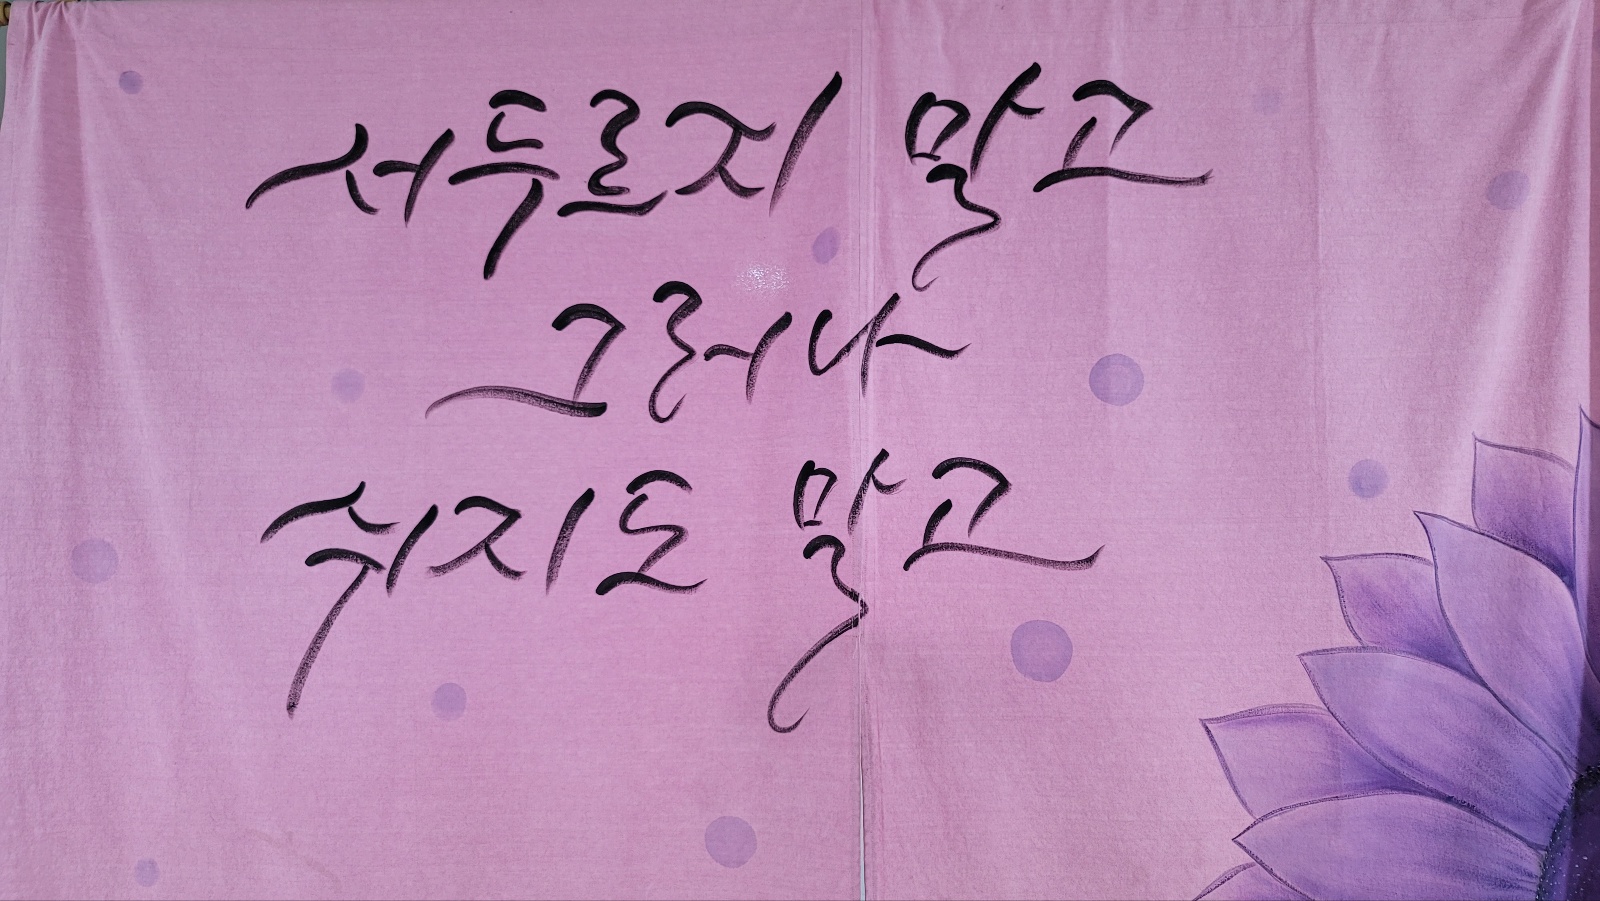 서두르지 말고
그러나
쉬지도 말고